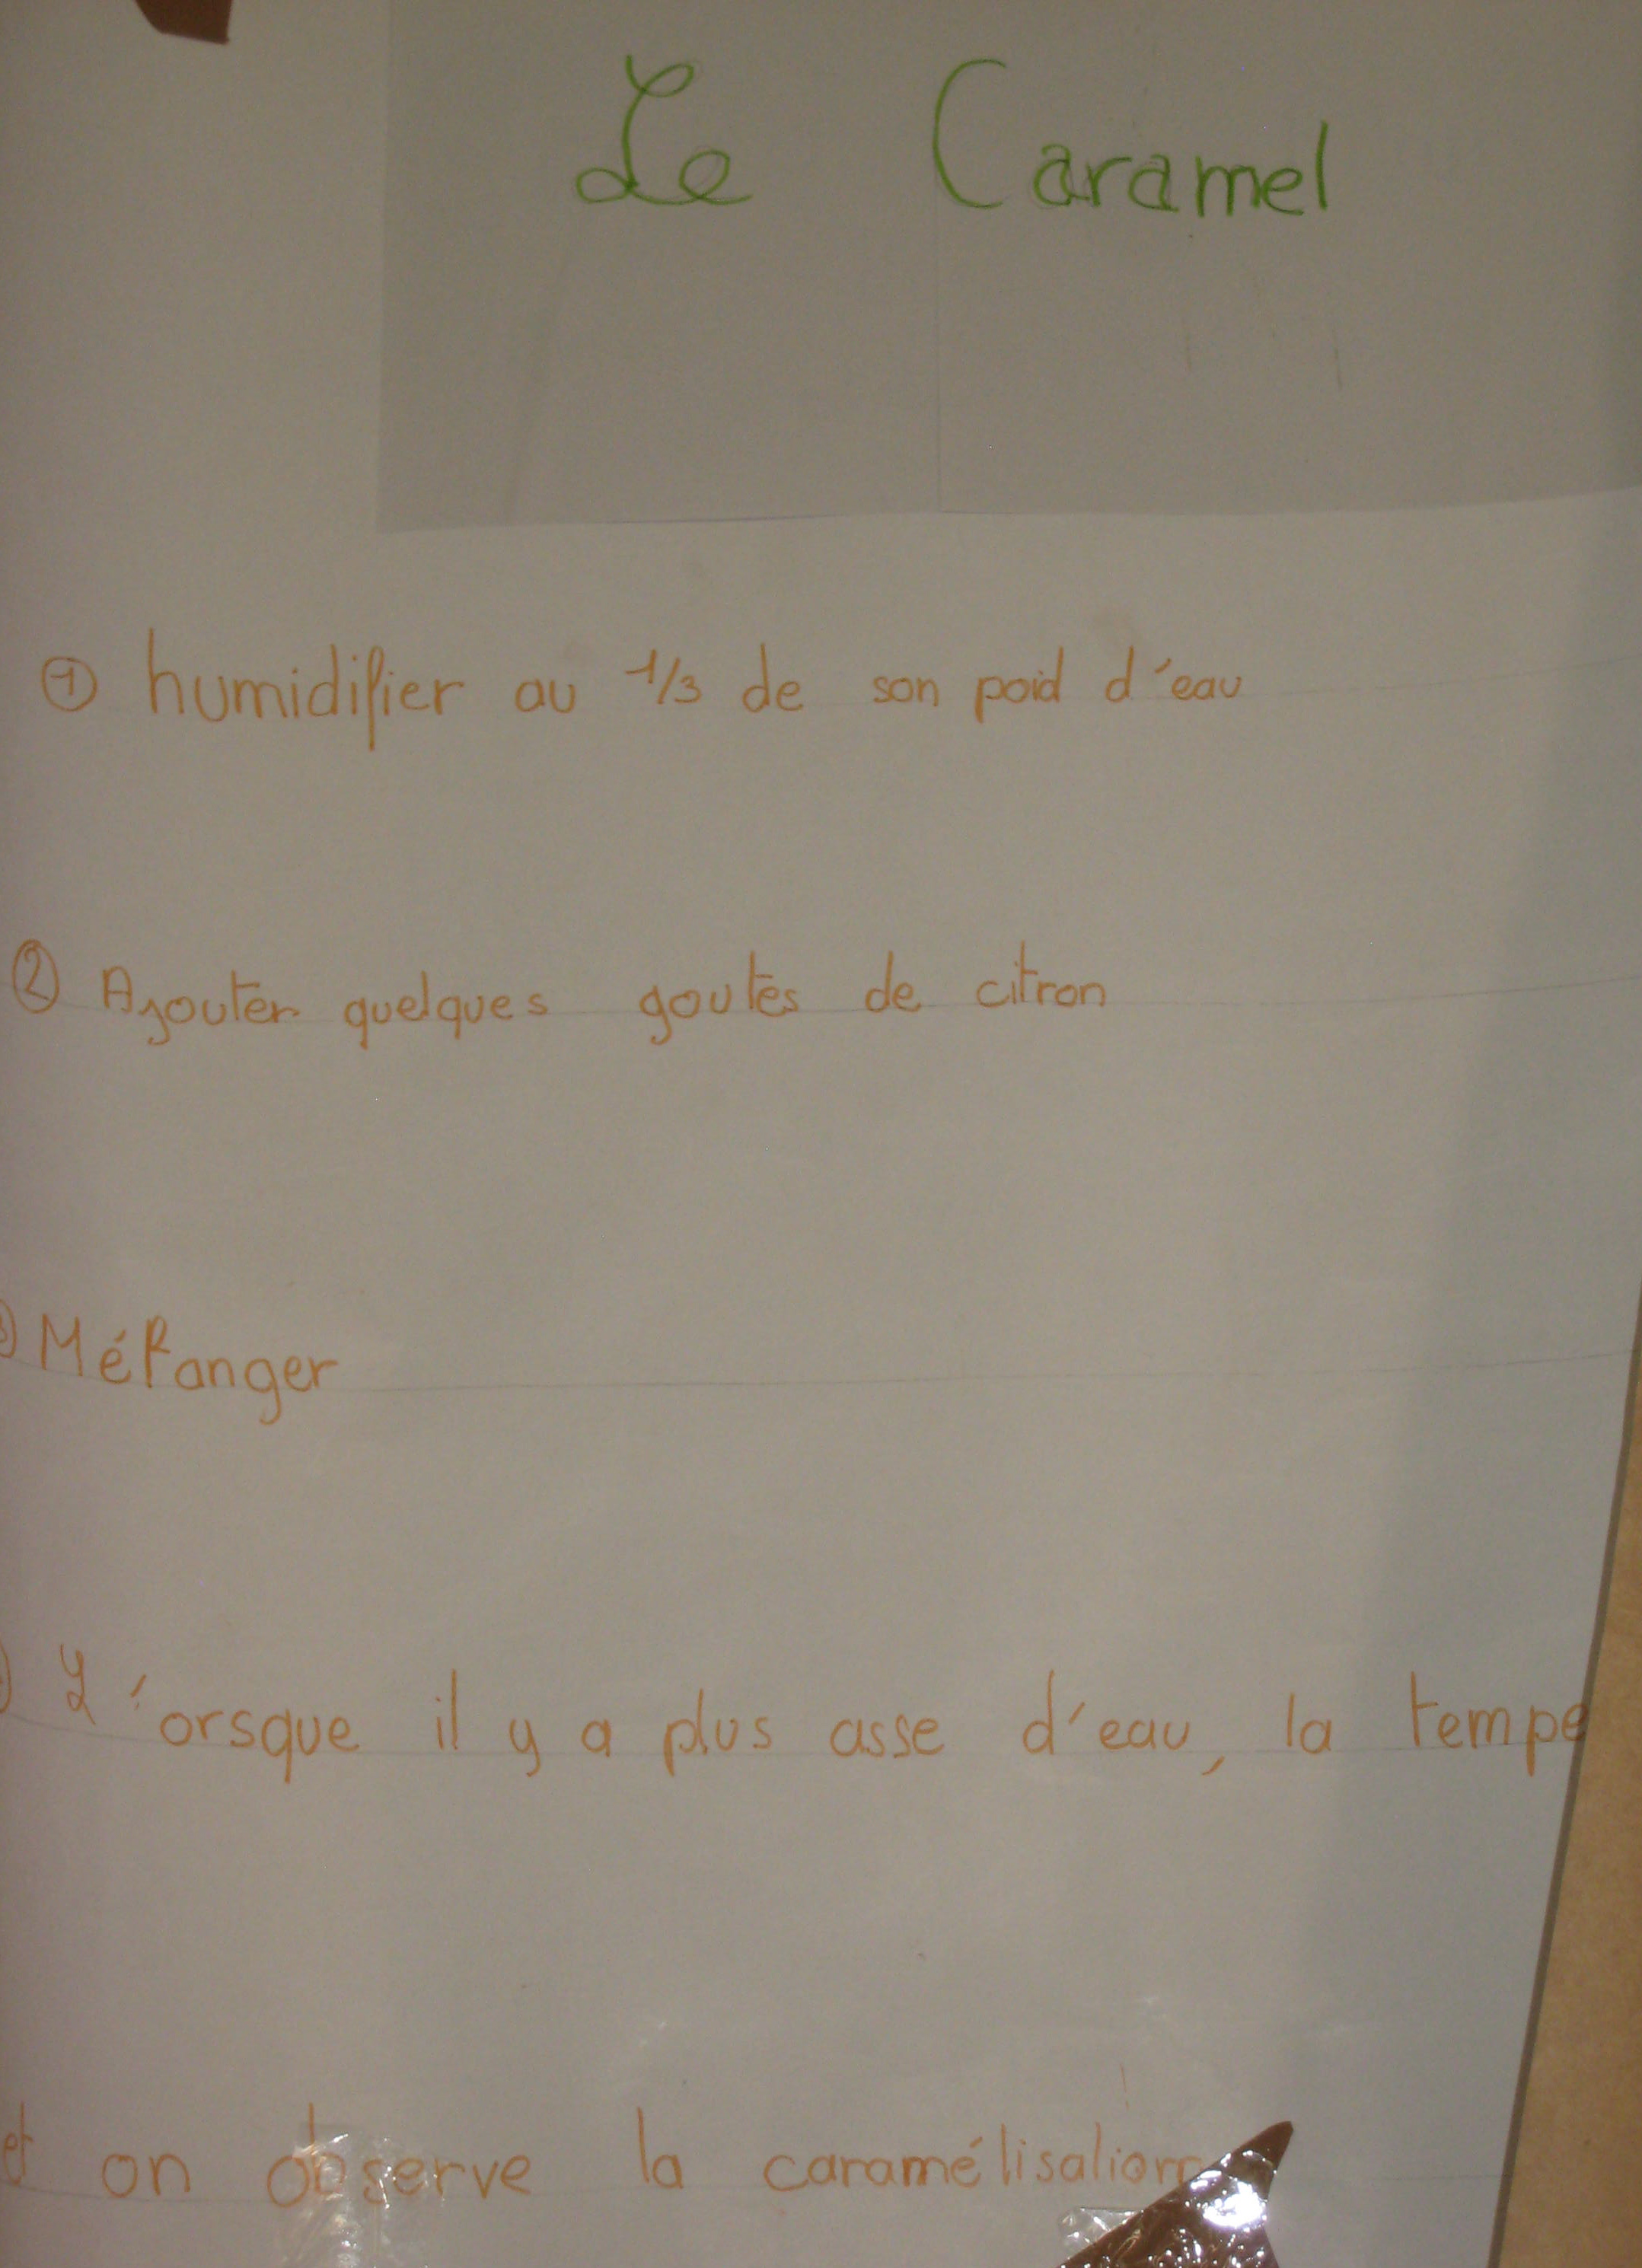 Le Caramel
① humidifier au 1/3 de son poid d'eau
② Ajouter quelques goutes de citron
Mélanger
L'orsque il y a plus asse d'eau, la tempe
et on observe la caramélisation